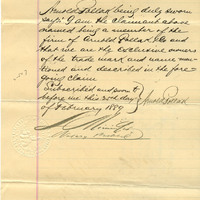 Arnold Pollak being duly sworn
says: I am the claimant above
named being a member of the
firm of Arnold Pollak & Co and
that we are the exclusive owners
of the trade mark and name men-
tioned and described in the fore-
going claim
Subscribed and sworn to
before me this 25th day
of February 1889
Arnold Pollak
Notary Public